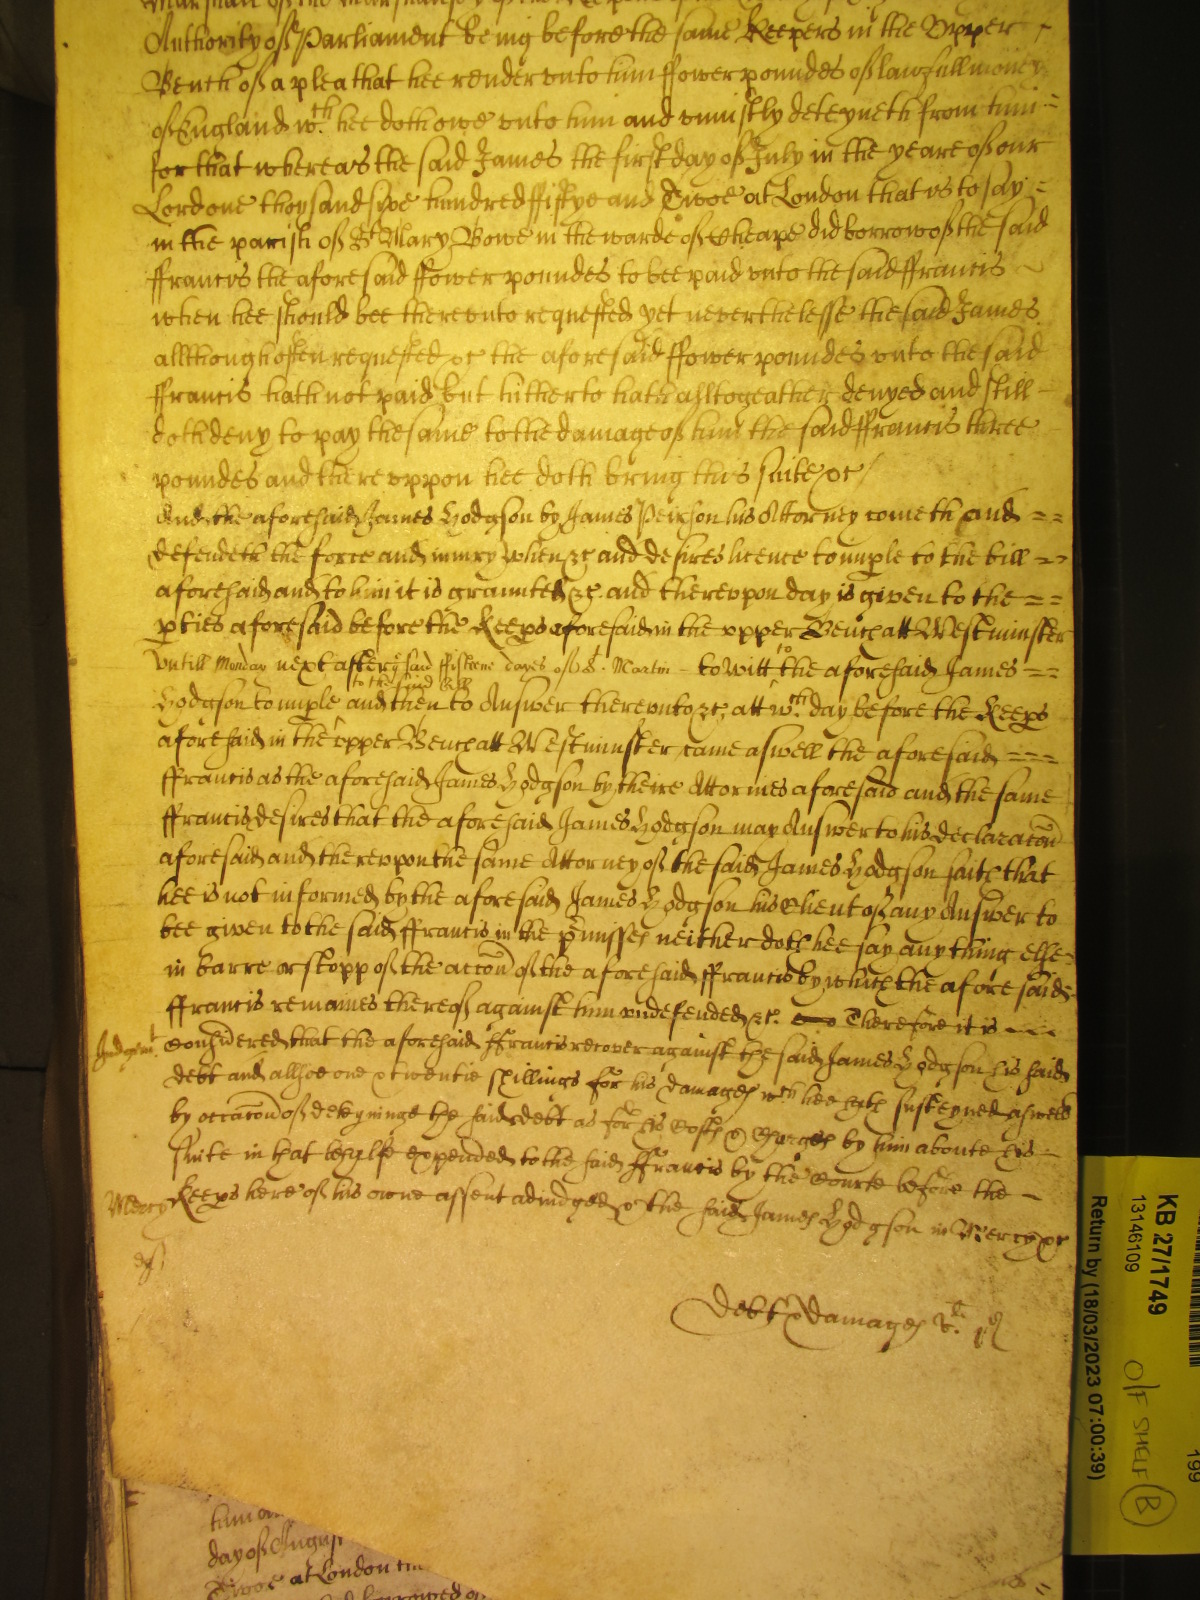 Marshall of the Marshalsey of the Keepers of the
Authority of Parliament being before the same Keepers in the Upper
Bench of a plea that hee render unto him ffower poundes of lawfull money
of England wch. hee doth owe unto him and uniustly deteyneth from him
for that whereas the said James the first day of July in the yeare of our
Lord one thousand sixe hundred fiftye and Twoe at London that is to say
in the parish of St Mary Bowe in the warde of Cheape did borrow of the said
ffrancis the aforesaid ffower poundes to bee paid unto the said ffrancis
when hee should bee thereunto requested yet neverthelesse the said James
allthough often requested &c the aforesaid ffower poundes unto the said
ffrancis hath not paid but hitherto hath alltogeather denyed and still
doth deny to pay the same to the damage of him the said ffrancis three
poundes and thereuppon hee doth bring this suite &c /
And the aforesaid James Hodgson by James Peirson his Attorney cometh and ==
defendeth the force and iniury when &c and desires licence to imple to the bill =
aforesaid and to him it is graunted &c. and thereupon day is given to the ==
pties aforesaid before the Keeps aforesaid in the upper Bench att Westminster
untill Monday next after ye said fifteene dayes of St. Martin - to witt to the aforesaid James ==
Hodgson to imple to the said Bill and then to Answer thereunto &c, att wch. day before the Keeps
aforesaid in the upper Bench att Westminster, came aswell the aforesaid ===
ffrancis as the aforesaid James Hodgson by theire Attornies aforesaid and the same
ffrancis desires that the aforesaid James Hodgson may Answer to his declaracōn
aforesaid and thereupon the same Attorney of the said James Hodgson saith that
hee is not informed by the aforesaid James Hodgson his Client of any Answer to
bee given to the said ffrancis in the pmisses neither doth hee say any thing else
in barre or stopp of the accōn of the aforesaid ffrancis by which the aforesaid
ffrancis remaines thereof against him undefended &c. Therefore it is
Judgemt. Considered that the aforesaid ffrancis recover against the said James Hodgson his said
debt and allsoe one & twentie shillings for his damages wch hee hath susteyned aswell
by occacōn of deteyninge the said debt as for his Costs & Charges by him aboute his
suite in that behalfe expended to the said ffrancis by the Courte before the
Mercy Keeps here of his owne assent adiudged & the said James Hodgson in Mercy &c
Debt & damages
him
day of August
Twoe at London
borrowed of
KB 27/1749
13146109
Return by (18/03/2023 07:00:39)
O/F SHELF B
199